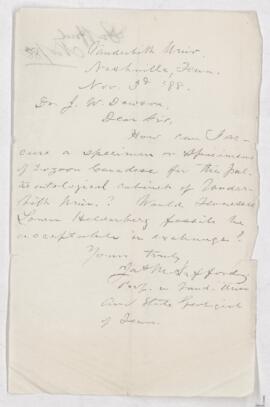 Vanderbilt Univ.
Nashville, Tenn.
Nov. 3d '88.
Dr. J. W. Dawson,
Dear Sir,
How can I se-
cure a specimen or specimens
of Eozoon Canadense for the pale-
ontological cabinet of Vander-
bilt Univ.? Would Tennessee
Lower Helderberg fossils be
acceptable in exchange?
Yours truly
Jas. M. Safford,
Prof. in Vand. Univ
and State Geologist
of Tenn.